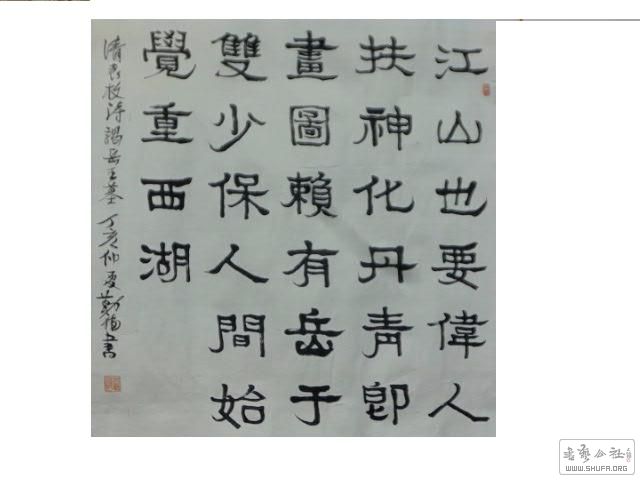 江山也要偉人
扶神化丹青卽
畫圖賴有岳于
雙少保人間始
覺重西湖
清袁枚詩謁岳王墓 丁亥仲夏勤書
WWW.SHUFA.ORG